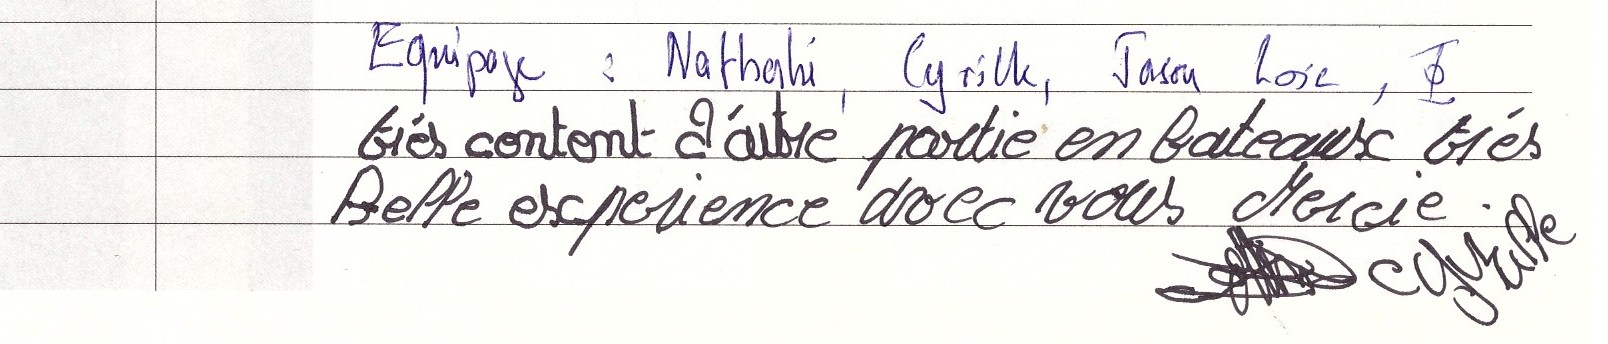 Equipage : Nathalie, Cyrille, Jason Loic,
très content d'aître partie en bateaux très
Belle experience avec vous Mercie.
Cyrille